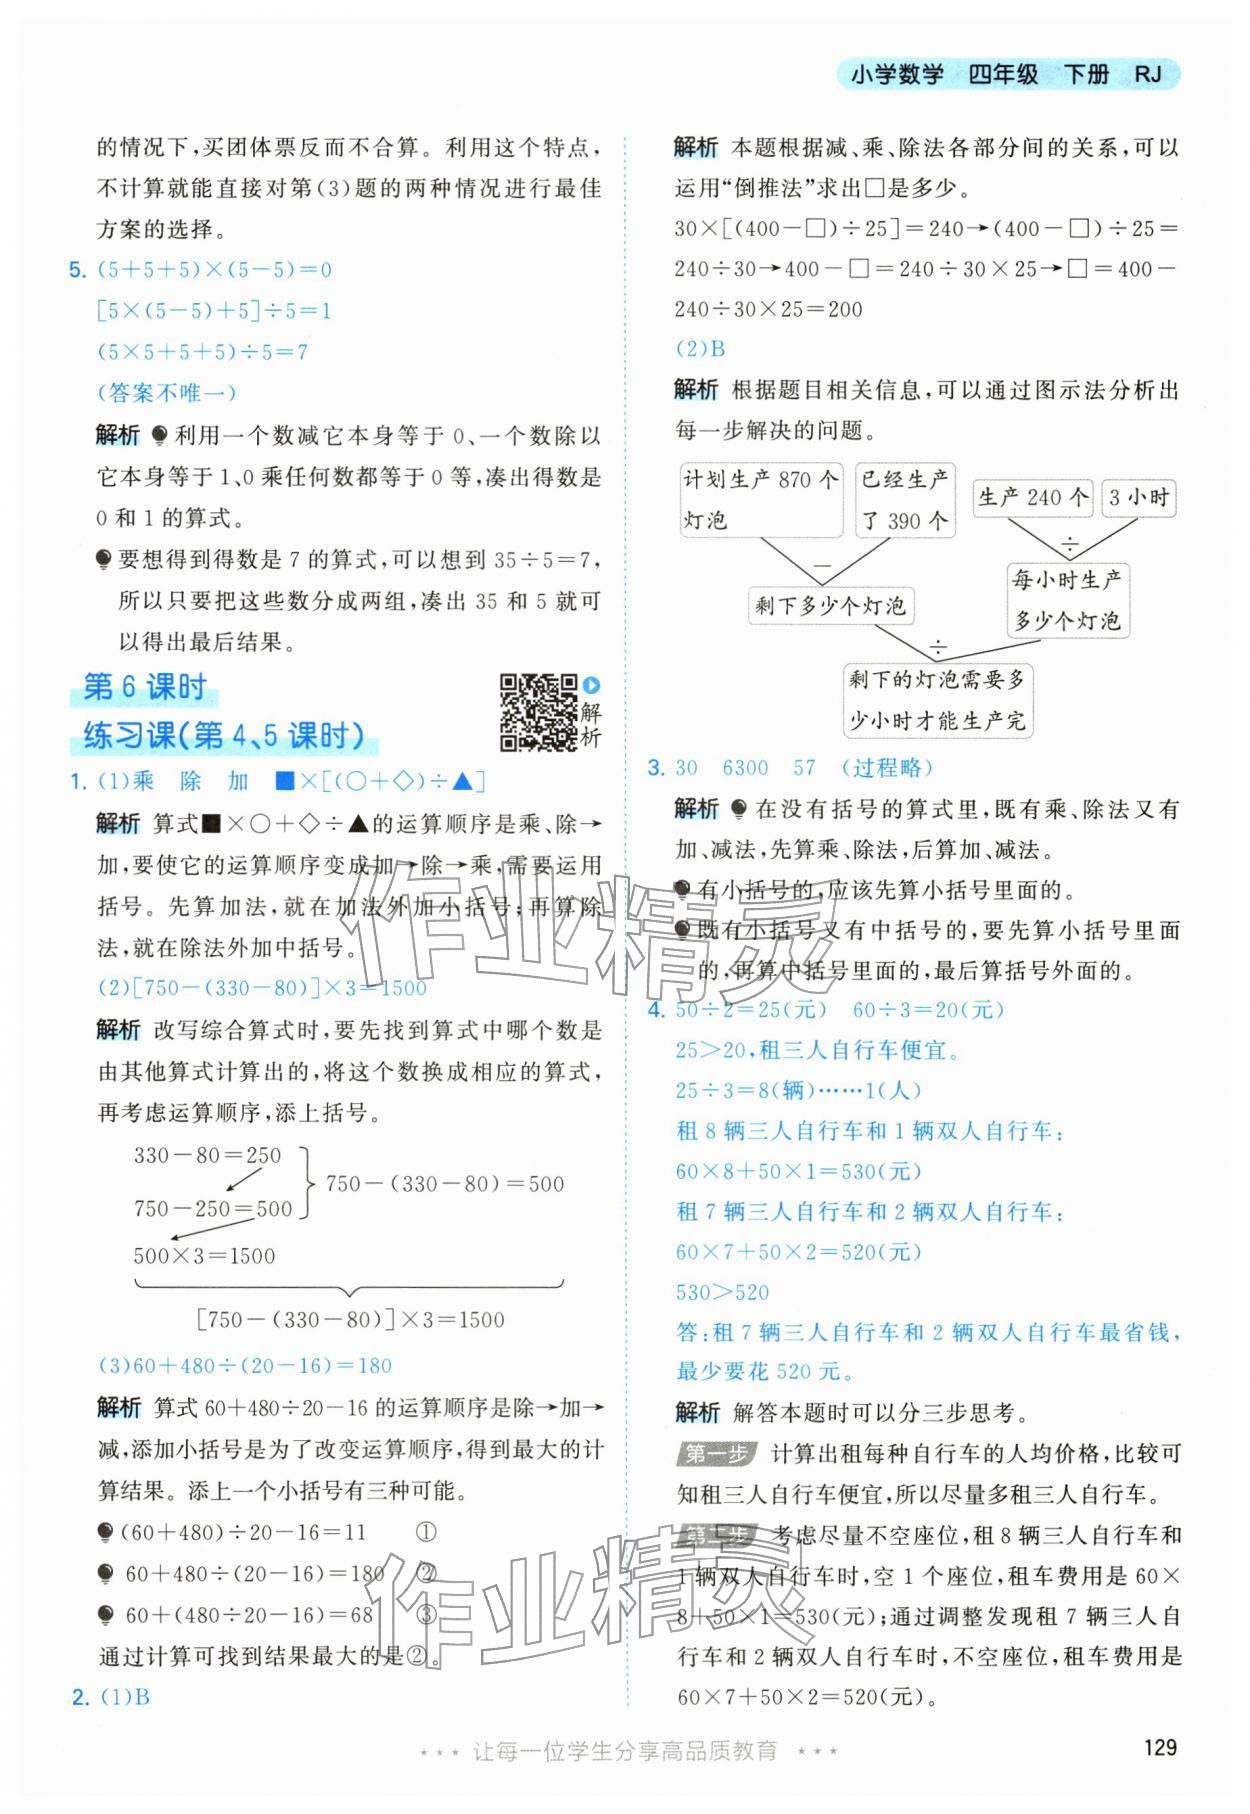 小学数学 四年级 下册 RJ
的情况下,买团体票反而不合算。利用这个特点,
不计算就能直接对第(3)题的两种情况进行最佳
方案的选择。
5. (5+5+5)×(5-5)=0
[5×(5-5)+5]÷5=1
(5×5+5+5)÷5=7
(答案不唯一)
解析 利用一个数减它本身等于 0、一个数除以
它本身等于 1、0 乘任何数都等于 0 等,凑出得数是
0 和 1 的算式。
要想得到得数是 7 的算式,可以想到 35÷5=7,
所以只要把这些数分成两组,凑出 35 和 5 就可
以得出最后结果。
第 6 课时
练习课(第 4、5 课时)
解析
1. (1)乘 除 加 ■×[(○+◇)÷▲]
解析 算式■×○+◇÷▲的运算顺序是乘、除→
加,要使它的运算顺序变成加→除→乘,需要运用
括号。先算加法,就在加法外加小括号;再算除
法,就在除法外加中括号。
(2)[750-(330-80)]×3=1500
解析 改写综合算式时,要先找到算式中哪个数是
由其他算式计算出的,将这个数换成相应的算式,
再考虑运算顺序,添上括号。
330-80=250
750-250=500
750-(330-80)=500
500×3=1500
[750-(330-80)]×3=1500
(3)60+480÷(20-16)=180
解析 算式 60+480÷20-16 的运算顺序是除→加→
减,添加小括号是为了改变运算顺序,得到最大的计
算结果。添上一个小括号有三种可能。
(60+480)÷20-16=11 ①
60+480÷(20-16)=180 ②
60+(480÷20-16)=68 ③
通过计算可找到结果最大的是②。
2. (1)B
解析 本题根据减、乘、除法各部分间的关系,可以
运用“倒推法”求出□是多少。
30×[(400-□)÷25]=240→(400-□)÷25=
240÷30→400-□=240÷30×25→□=400-
240÷30×25=200
(2)B
解析 根据题目相关信息,可以通过图示法分析出
每一步解决的问题。
计划生产 870 个
灯泡
已经生产
了 390 个
生产 240 个
3 小时
-
÷
剩下多少个灯泡
每小时生产
多少个灯泡
÷
剩下的灯泡需要多
少小时才能生产完
3. 30 6300 57 (过程略)
解析 在没有括号的算式里,既有乘、除法又有
加、减法,先算乘、除法,后算加、减法。
有小括号的,应该先算小括号里面的。
既有小括号又有中括号的,要先算小括号里面
的,再算中括号里面的,最后算括号外面的。
4. 50÷2=25(元) 60÷3=20(元)
25>20,租三人自行车便宜。
25÷3=8(辆)……1(人)
租 8 辆三人自行车和 1 辆双人自行车:
60×8+50×1=530(元)
租 7 辆三人自行车和 2 辆双人自行车:
60×7+50×2=520(元)
530>520
答:租 7 辆三人自行车和 2 辆双人自行车最省钱,
最少要花 520 元。
解析 解答本题时可以分三步思考。
第一步 计算出租每种自行车的人均价格,比较可
知租三人自行车便宜,所以尽量多租三人自行车。
第二步 考虑尽量不空座位,租 8 辆三人自行车和
1 辆双人自行车时,空 1 个座位,租车费用是 60×
8+50×1=530(元);通过调整发现租 7 辆三人自
行车和 2 辆双人自行车时,不空座位,租车费用是
60×7+50×2=520(元)。
作业精灵
作业精灵
*** 让每一位学生分享高品质教育 ***
129